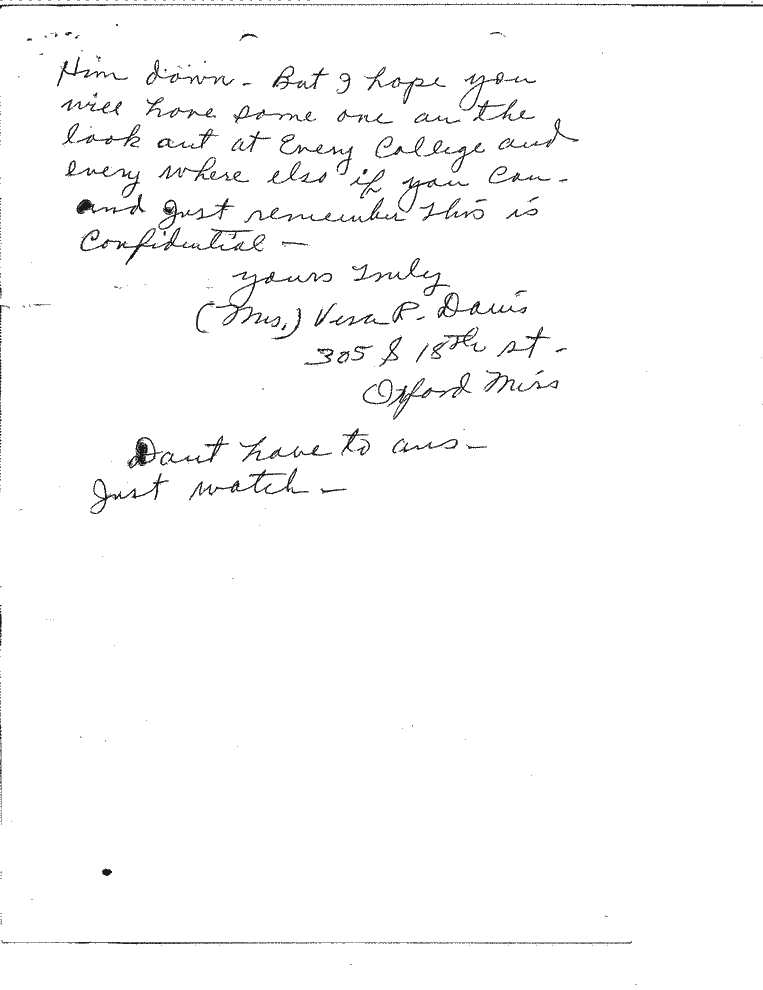 Him down - But I hope you
will have some one on the
look out at Every College and
every where else if you Can -
and Just remember this is
Confidential -
yours Truly
(Mrs.) Vera P. Davis
305 S 18th st -
Oxford Miss
Dont have to ans -
Just watch -